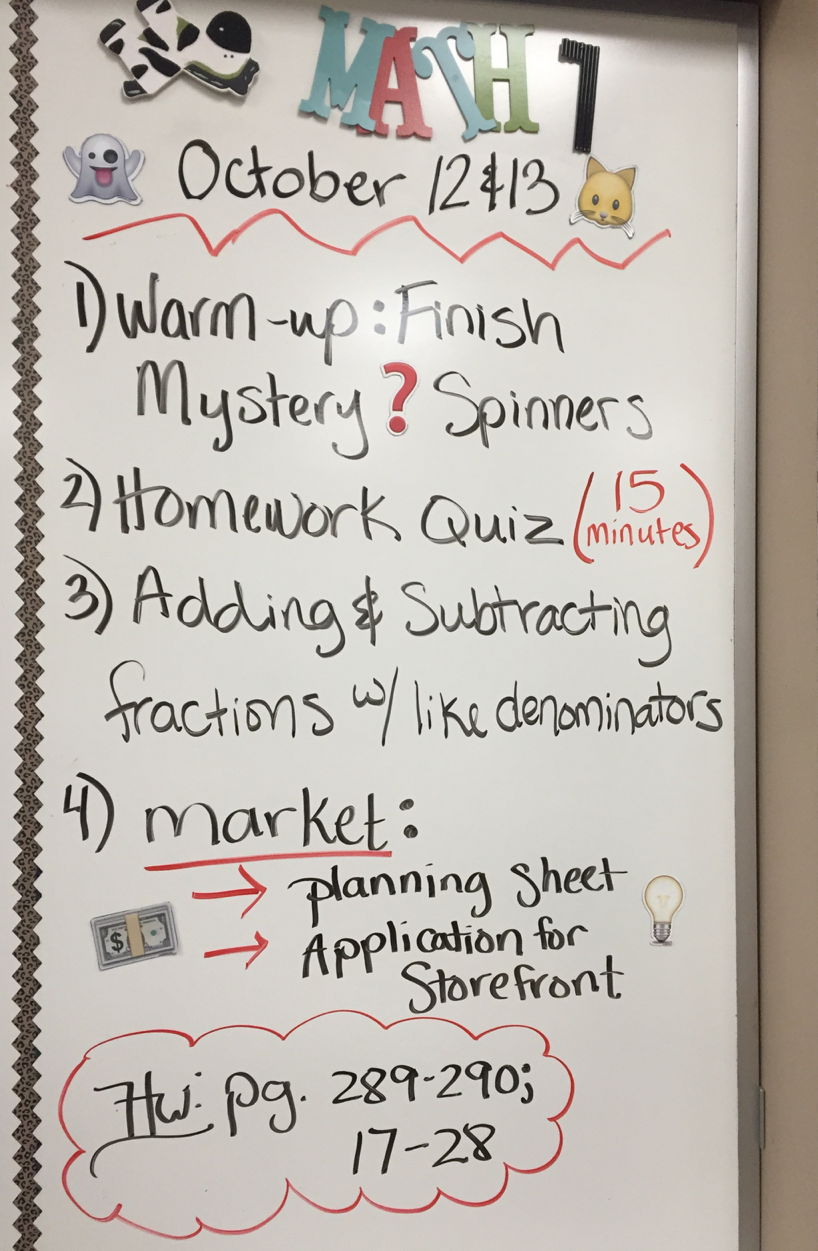 MATH 7
October 12 & 13
1) Warm-up: Finish
Mystery ? Spinners
2) Homework Quiz (15 minutes)
3) Adding & Subtracting
fractions w/ like denominators
4) market:
→ planning sheet
$
→ Application for
Storefront
Hw: pg. 289-290;
17-28